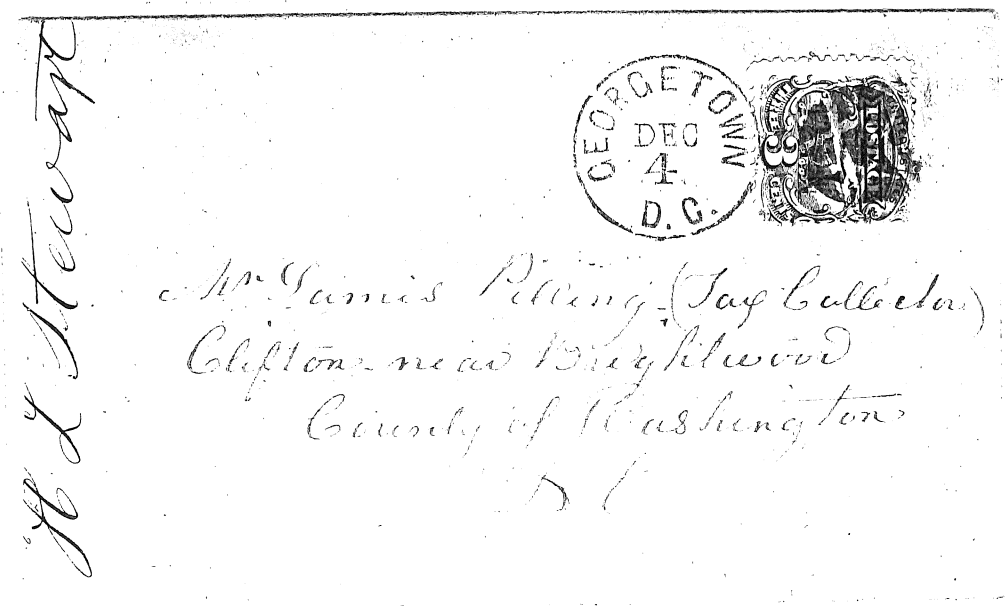 H L Stewart
GEORGETOWN
DEC
4
D.C.
3
POSTAGE
Mr James Pilling (Tax Collector)
Clifton near Brightwood
County of Washington
D C